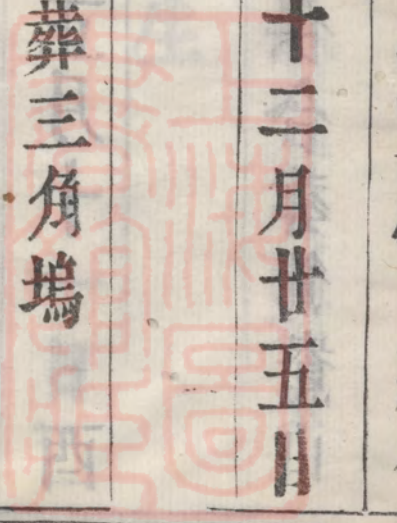 十二月廿五日
葬三角塢